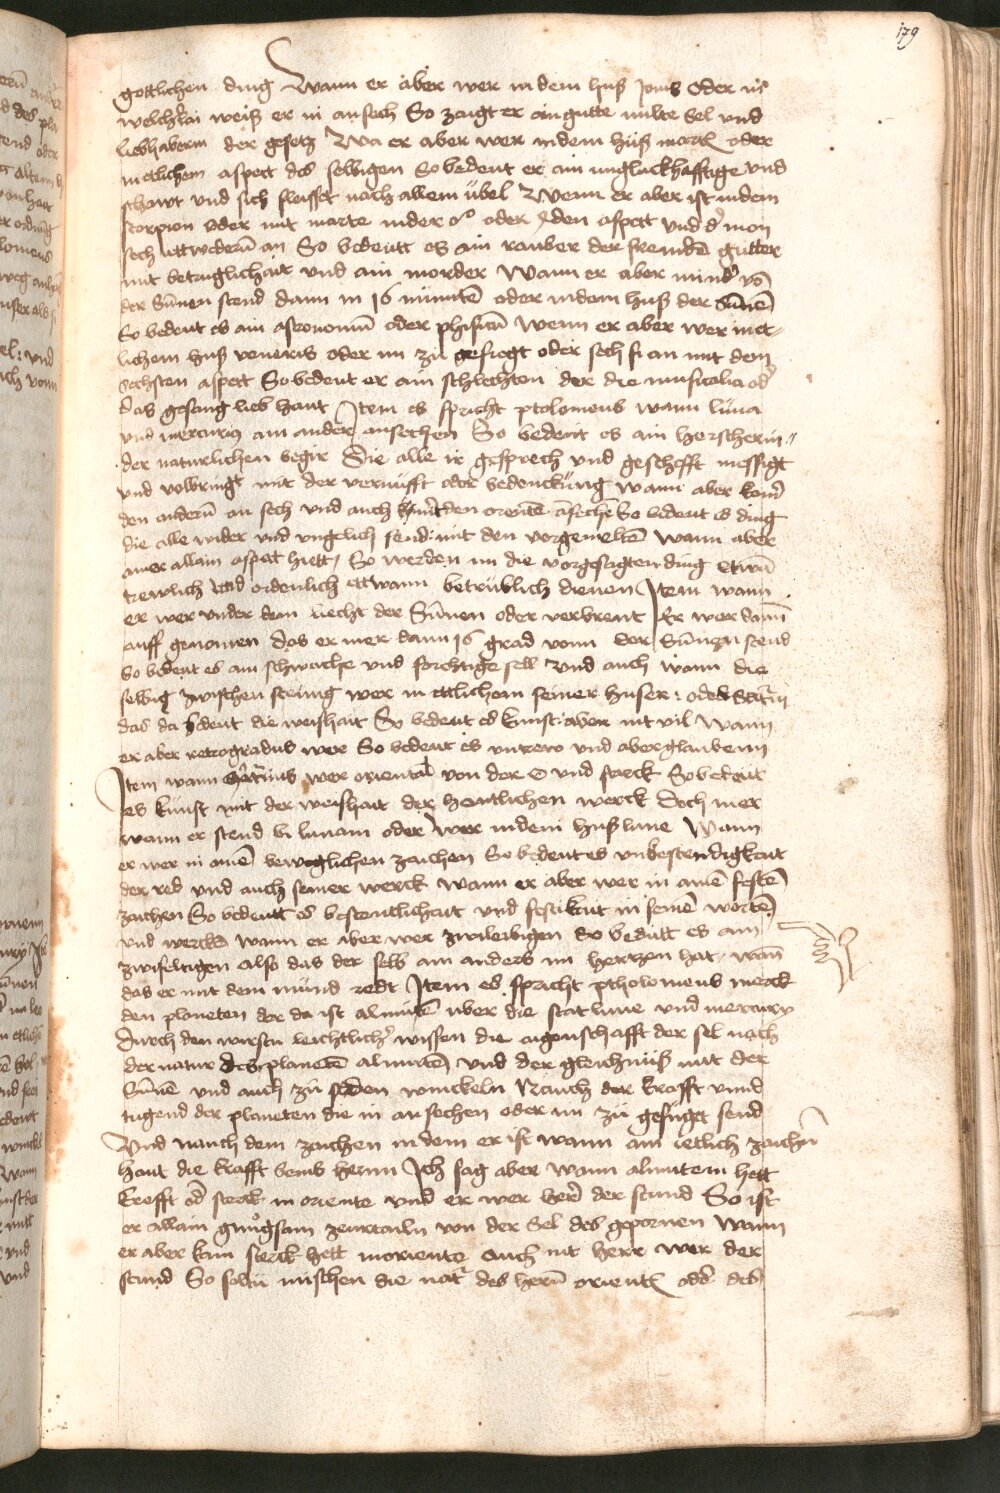 179
gottlichen ding Wann er aber wer in dem huß Jovis oder in
welcherlai weiß er in ansech So zaigt er ain gutte milte sel und
liebhaberin der gesetz Wa er aber wer in dem huß mart oder
in etlichem aspect des selbigen So bedeut er ain ungluckhafftige und
schawt und sich fleisset nach allem übel Wenn er aber ist in dem
scorpion oder mit marte in der ☍ oder den aspect und d' mon
sech ettwederñ an So bedeutt es ain rauber der fremdē gutter
mit betruglichait und ain morder Wann er aber mind' vō
der Sūnen stend dann in 16 minutē oder in dem huß der Sūnē
So bedeut es ain astronomū oder phisicū wenn er aber wer in et-
lichem huß veneris oder im zu gefuegt oder sech si an mit dem
sechsten aspect So bedeut er ain schlechten der die musicalia od'
das gesang lieb haut Item es spricht ptolomeus wann luna
und mercurius ain ander ansechen So bedeut es ain herscherin
der naturlichen begir Die alle ir gesprech und geschefft messigt
und volbringt mit der vernufft oder bedenckūng wann aber kain'
den anderñ an sech und auch den orientē ansechē So bedeut es ding
die alle wider und ungelich send mit den vorgemeltē wann aber
ainer allain aspect hett / So werden im die vorgesagten ding etwañ
trewlich und ordenlich ettwann betrüblich dienen Item wann
er wer under dem liecht der Sūnnen oder verbrent Er wer dann
auff genomen das er mer dann 16 grad vonn der Sūnnen stend
So bedeut es ain schwache und forchtige sell und auch wann die
selbig zwischen stelung wer in ettlichem seiner huser : oder Saturn
das da bedeut die weishait So bedeut es kunst : aber nit vil Wann
er aber retrogradus wer So bedeut es untrew und aberglaubenn
Item wann Saturnus wer oriental von der ☉ und starck So bedeut
es kunst mit der weishait der hentlichen werck Doch mer
wann er stend bi lunam oder wer in dem huß lune Wann
er wer in ainē beweglichen zaichen So bedeut es unbestendigkait
der red und auch seiner werck wann er aber wer in ainē festē
zaichen So bedeutt es bestentlichait und festikait in seinē wortē
und werckē wann er aber wer zwileibigen So bedutt es ain
zwifeltigen also das der selb ain anders im hertzen hat / wañ
das er mit dem mund redt Item es spricht ptholomeus merck
den planeten der da ist almutē uber die stat lune und mercury
durch den wirstu leichtlich' wissen die aigenschafft der sel nach
der natur des planetē almutē und der gleichnuß mit der
Sūnē und auch zu den winckeln Nauch der krafft unnd
tugend der planeten die in ansechen oder im zu gefuget send
Und nauch dem zaichen in dem er ist wann ain ietlich zaichen
haut die krafft seins herrnn Ich sag aber wann almutem hett
krefft od' sterck in oriente und er wer her' der stund So ist
er allain gnugsam zeurtailn von der Sel des gepornen Wann
er aber kain sterck hett in oriente auch nit herr wer der
stund So soltu mischen die nat' des herñ orient oder des